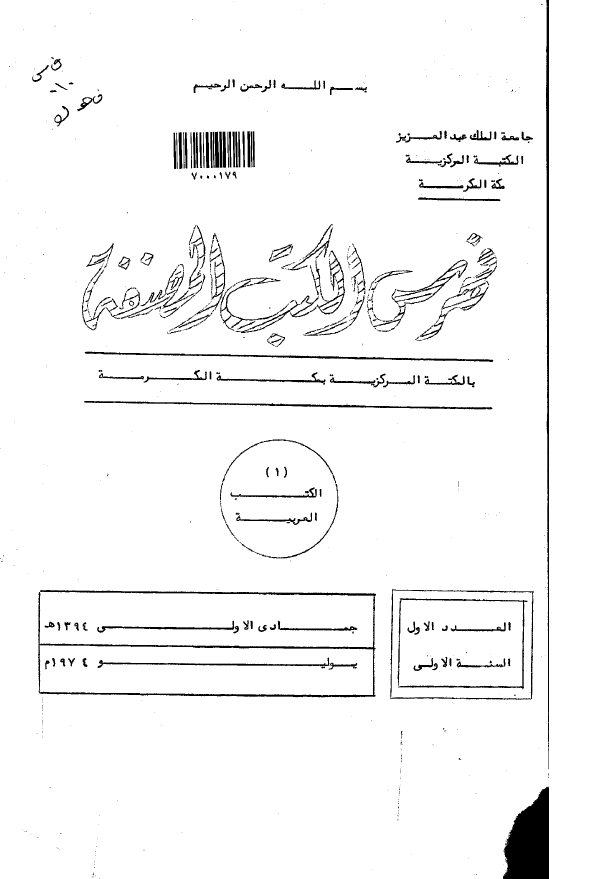 بسم اللـه الرحمن الرحيم
جامعة الملك عبد العزيز
المكتبة المركزية
مكة المكرمة
٧٠٠٠١٧٩
فهرس الكتب المصنفة
بالمكتبة المركزية بمكة المكرمة
(١)
الكتب
العربية
العدد الاول
السنة الاولى
جمادى الاولى ١٣٩٤هـ
يوليو ١٩٧٤م